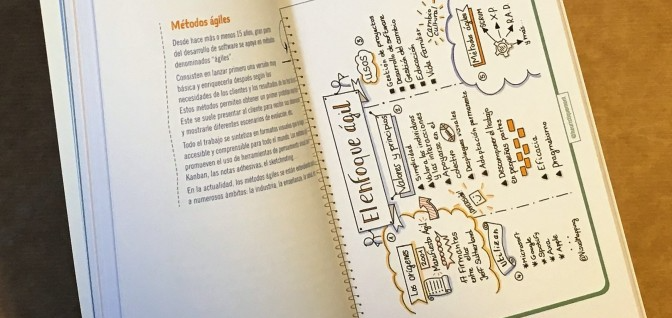 Métodos ágiles
Desde hace más o menos 15 años, gran parte
del desarrollo de software se apoya en métodos
denominados "ágiles".
Consisten en lanzar primero una versión muy
básica y enriquecerla después según las
necesidades de los clientes y los resultados
Estos métodos permiten obtener un primer
Este se suele presentar al cliente para
y mostrarle diferentes escenarios de evolución
Todo el trabajo se sintetiza en formatos visuales
accesible y comprensible para todo el mundo
promueven el uso de herramientas de pensamiento
Kanban, las notas adhesivas, el sketchnoting
En la actualidad, los métodos ágiles se están
a numerosos ámbitos: la industria, la enseñanza
El enfoque ágil
① Los orígenes
2001
Manifiesto Ágil
17 Firmantes
entre ellos
Jeff Sutherland
② Valores y principios
Simplicidad
Valora los individuos
y las interacciones
Apoyo en el
colectivo
Despliegues
Adaptación permanente
Descomponer el trabajo
en pequeñas partes
Eficacia
pragmatismo
③ USOS
Gestión de proyectos
Desarrollo de software
Gestión del cambio
Educación
Vida familiar
Cambio
cultural
④ Utilizan
Microsoft
Google
Spotify
Axa
Apple
⑤ Métodos ágiles
SCRUM
XP
RAD
y más...